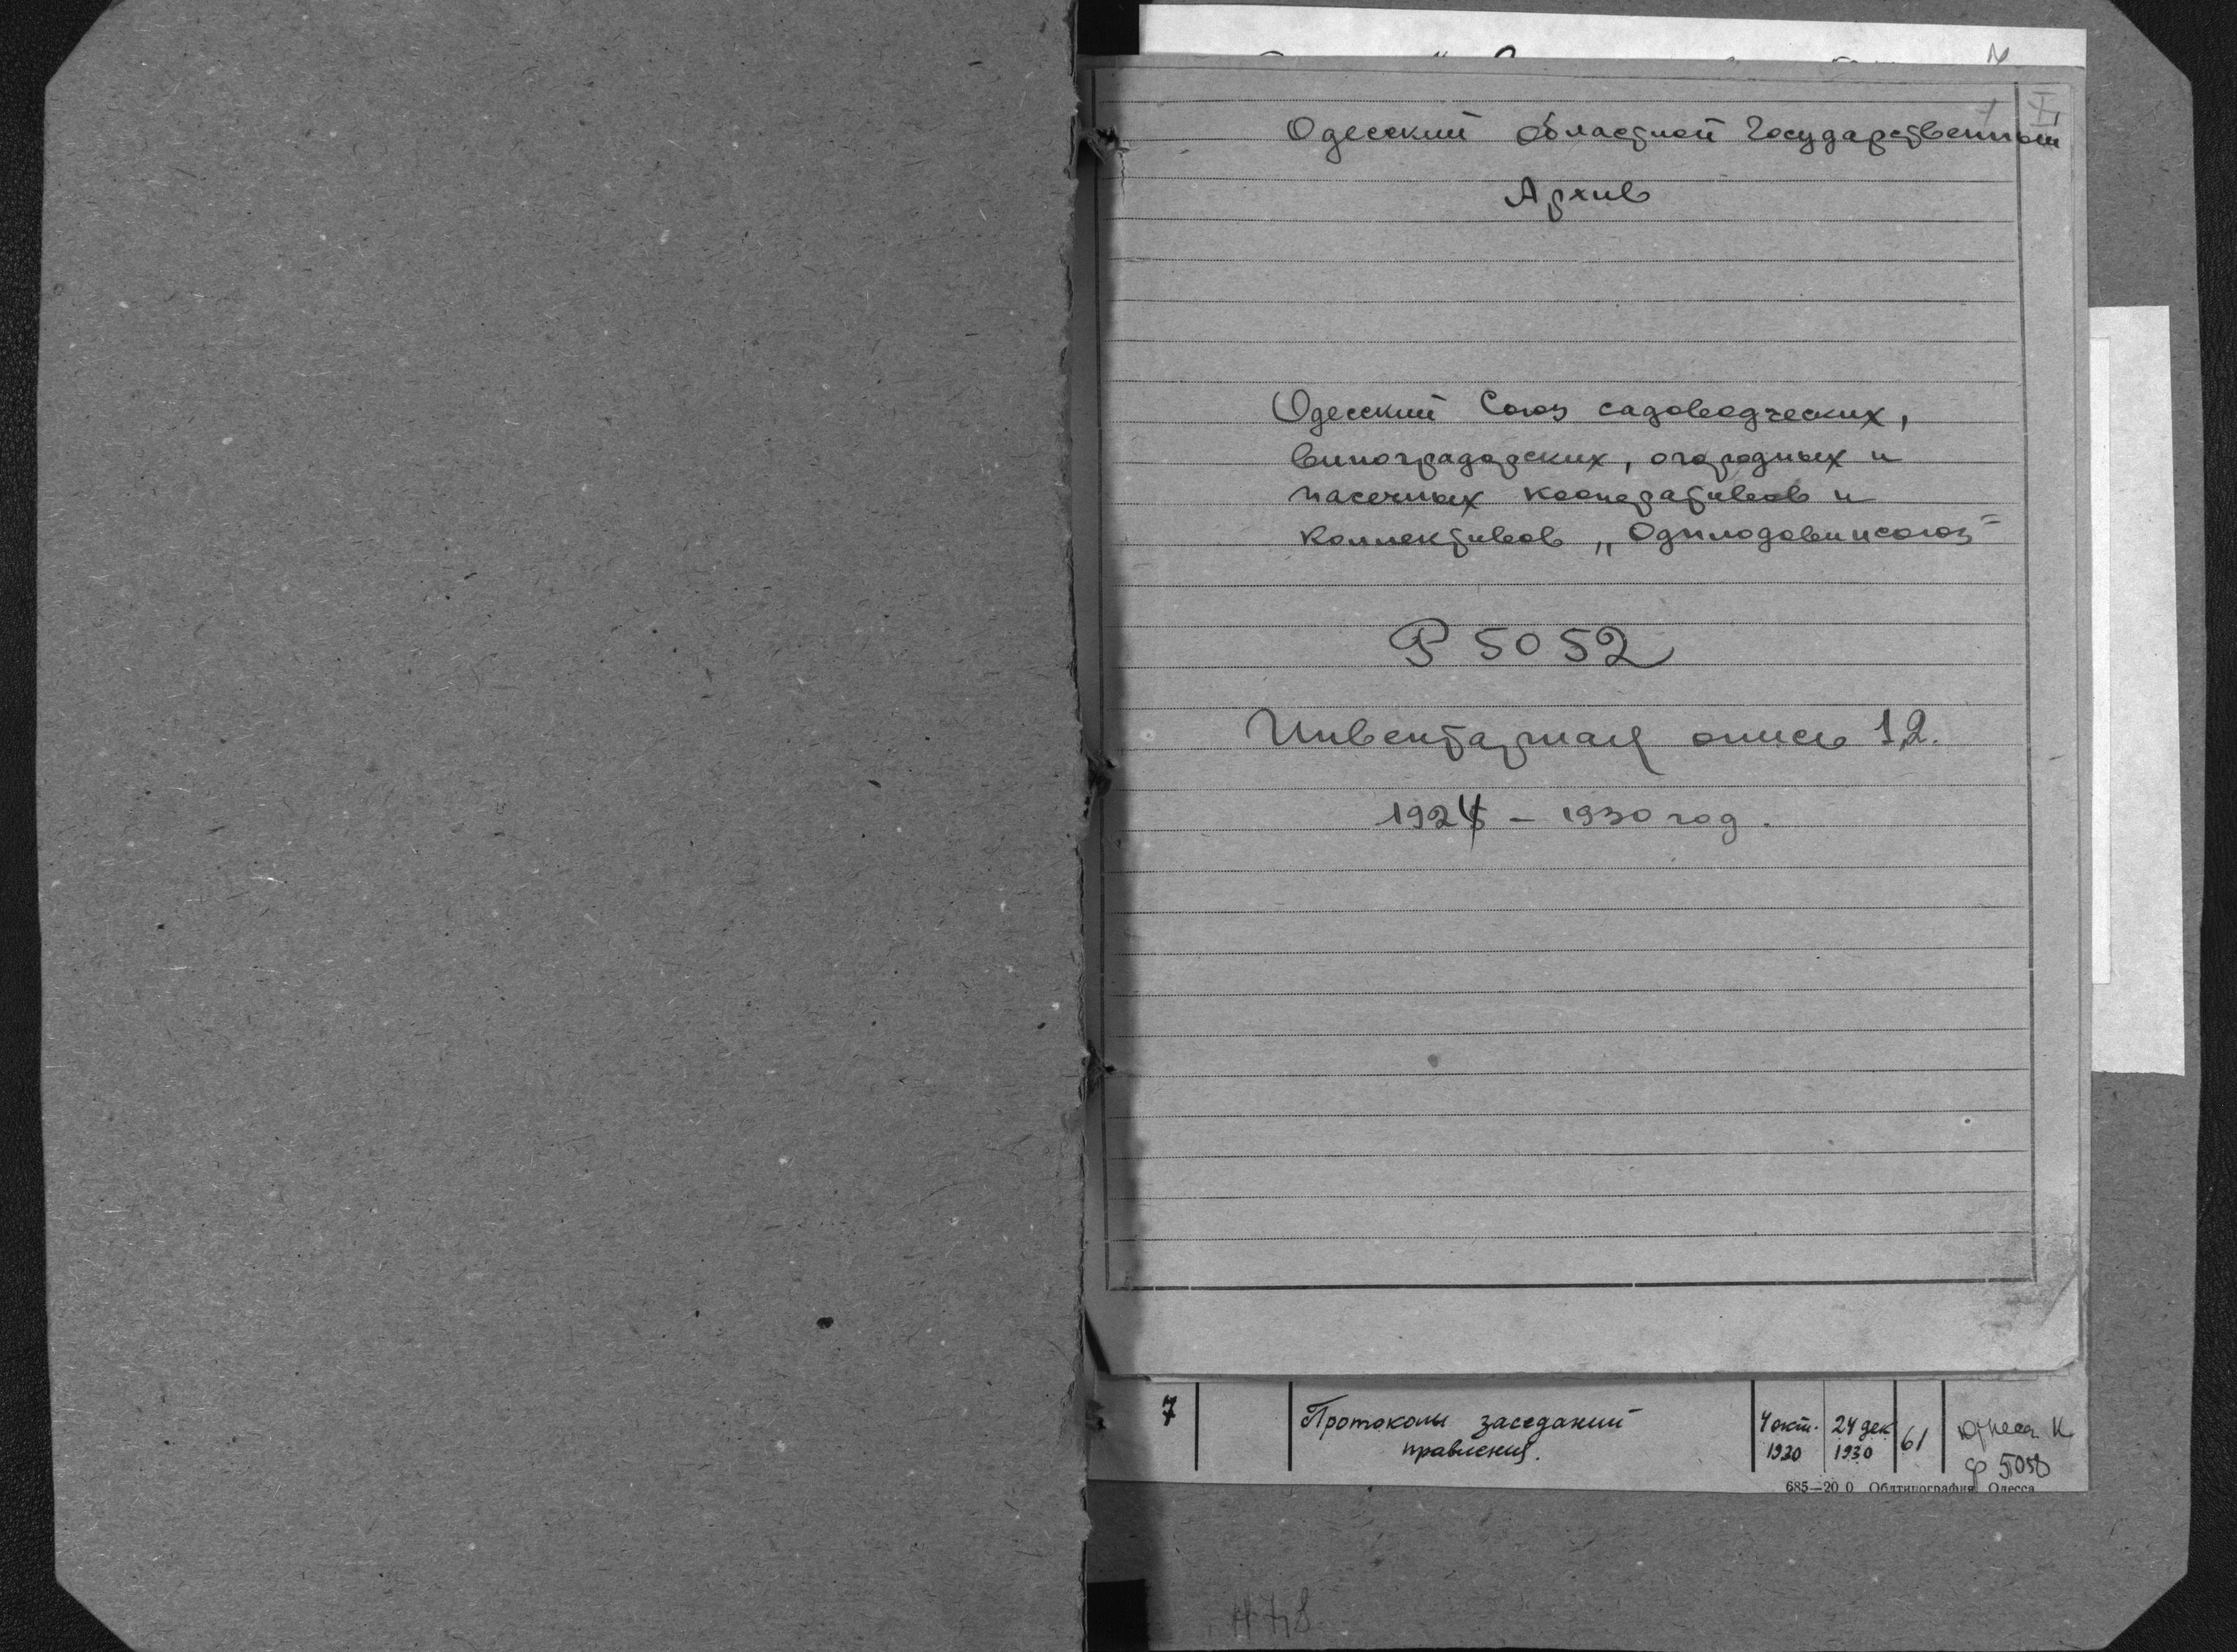 Одесский областной Государственный
Архив
Одесский Союз садоводческих,
виноградарских, огородных и
пасечных кооперативов и
коллективов „Одплодовинсоюз"
Р 5052
Инвентарная опись 1,2.
1924 – 1930 год.
7 Протоколы заседаний 4 окт. 24 дек 61
правления. 1930 1930 ф 5058
685—20 0 Облтипография Одесса